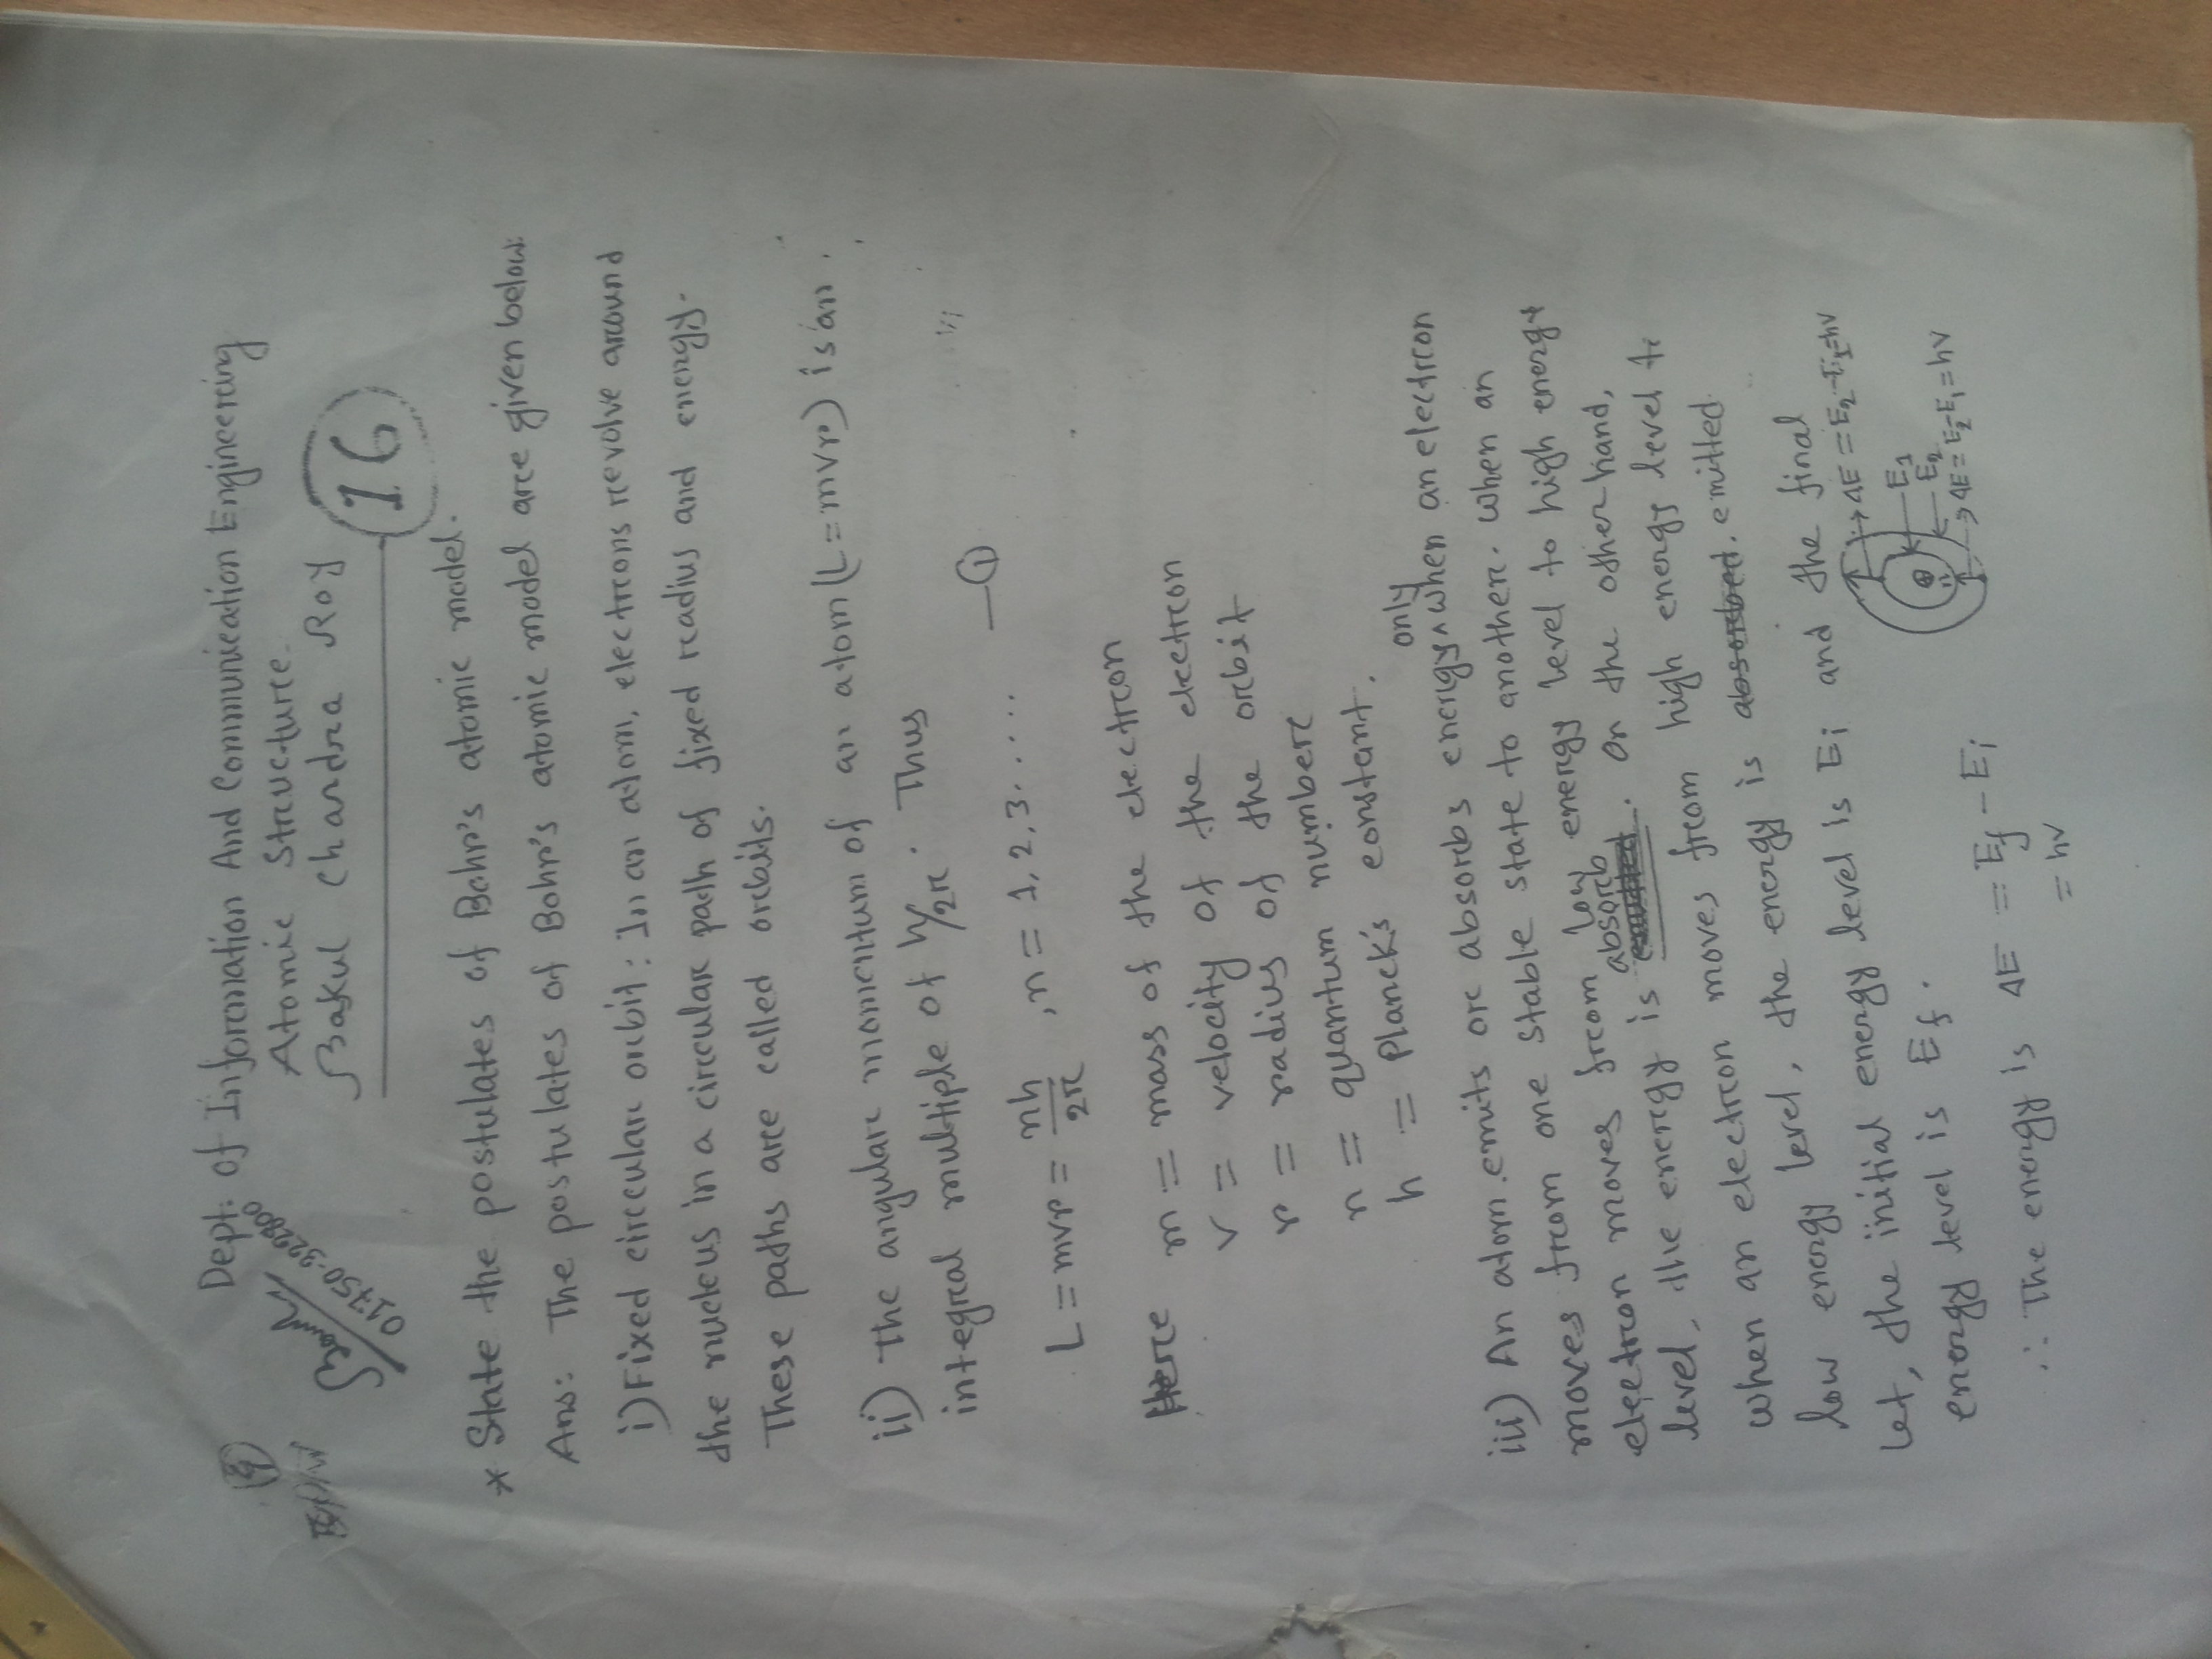 Dept. of Information And Communication Engineering
Atomic Structure.
Bakul Chandra Roy
16
01750-322800
* State the postulates of Bohr's atomic model.
Ans: The postulates of Bohr's atomic model are given below:
i) Fixed circular orbit: In an atom, electrons revolve around
the nucleus in a circular path of fixed radius and energy.
These paths are called orbits.
ii) The angular momentum of an atom (L = mvr) is an
integral multiple of h/2π. Thus
L = mvr = nh/2π , n = 1, 2, 3. . . . . —①
Here m = mass of the electron
v = velocity of the electron
r = radius of the orbit
n = quantum number
h = Planck's constant.
iii) An atom emits or absorbs energy only when an electron
moves from one stable state to another. When an
electron moves from low energy level to high energy
level, the energy is absorb. On the other hand,
when an electron moves from high energy level to
low energy level, the energy is absorbed. emitted
Let, the initial energy level is Ei and the final
energy level is Ef.
∴ The energy is ΔE = Ef - Ei
= hν
ΔE = E2 - E1 = hν
E1
E2
ΔE = E2 - E1 = hν